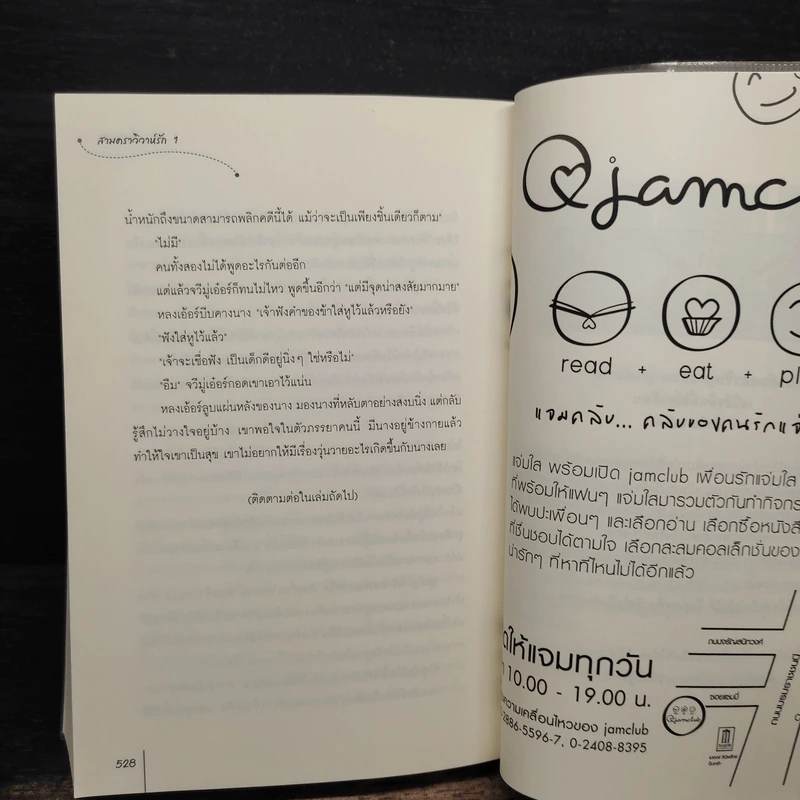 สามตราวิวาห์รัก 1
น้ำหนักถึงขนาดสามารถพลิกคดีนี้ได้ แม้ว่าจะเป็นเพียงชิ้นเดียวก็ตาม"
"ไม่มี"
คนทั้งสองไม่ได้พูดอะไรกันต่ออีก
แต่แล้วจวีมู่เอ๋อร์ก็ทนไม่ไหว พูดขึ้นอีกว่า "แต่มีจุดน่าสงสัยมากมาย"
หลงเอ้อร์บีบคางนาง "เจ้าฟังคำของข้าใส่หูไว้แล้วหรือยัง"
"ฟังใส่หูไว้แล้ว"
"เจ้าจะเชื่อฟัง เป็นเด็กดีอยู่นิ่งๆ ใช่หรือไม่"
"อืม" จวีมู่เอ๋อร์กอดเขาเอาไว้แน่น
หลงเอ้อร์ลูบแผ่นหลังของนาง มองนางที่หลับตาอย่างสงบนิ่ง แต่กลับ
รู้สึกไม่วางใจอยู่บ้าง เขาพอใจในตัวภรรยาคนนี้ มีนางอยู่ข้างกายแล้ว
ทำให้ใจเขาเป็นสุข เขาไม่อยากให้มีเรื่องวุ่นวายอะไรเกิดขึ้นกับนางเลย
(ติดตามต่อในเล่มถัดไป)
528
jamc
read + eat + pl
แจมคลับ... คลับของคนรักแจ
แจ่มใส พร้อมเปิด jamclub เพื่อนรักแจ่มใส
ที่พร้อมให้แฟนๆ แจ่มใสมารวมตัวกันทำกิจกร
ได้พบปะเพื่อนๆ และเลือกอ่าน เลือกซื้อหนังสื
ที่ชื่นชอบได้ตามใจ เลือกสะสมคอลเล็กชั่นของ
น่ารักๆ ที่หาที่ไหนไม่ได้อีกแล้ว
ให้แจมทุกวัน
10.00 - 19.00 น.
ความเคลื่อนไหวของ jamclub
2886-5596-7, 0-2408-8395
ถนนจรัญสนิทวงศ์
ซอยแซมมี่
jamclub